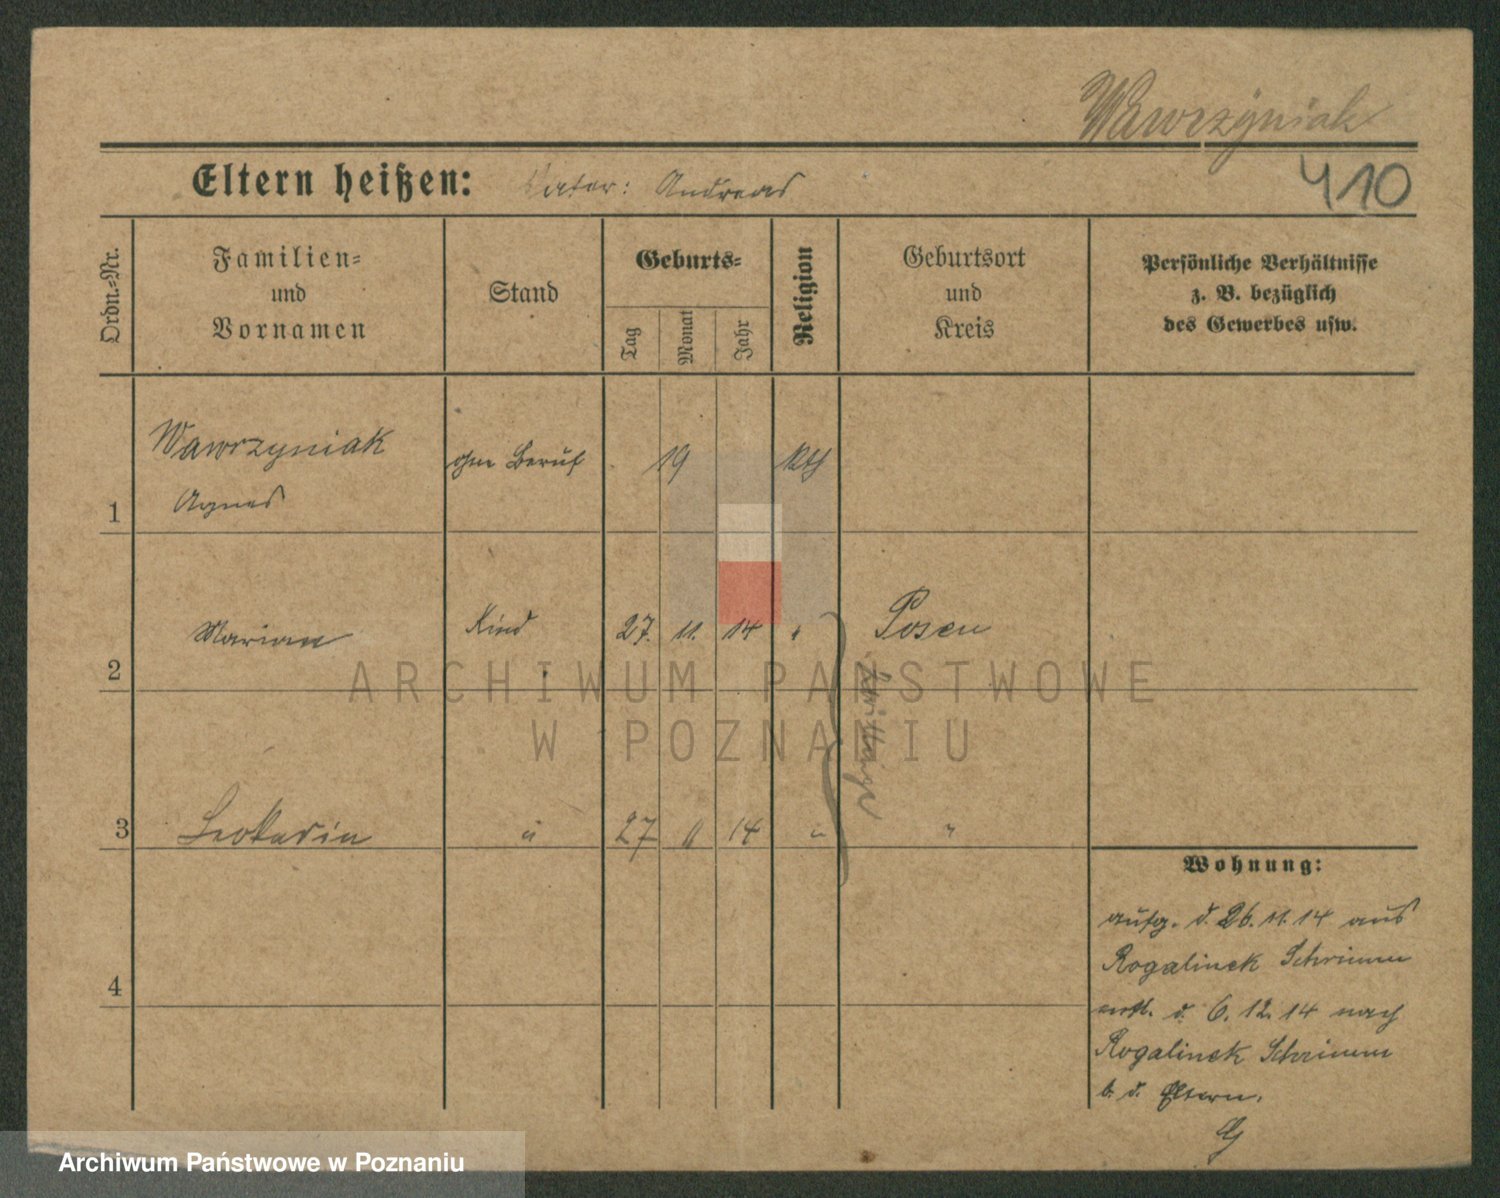 Wawrzyniak
410
Eltern heißen: Vater: Andreas
Ordn.-Nr.
Familien-
und
Vornamen
Stand
Geburts-
Tag
Monat
Jahr
Religion
Geburtsort
und
Kreis
Persönliche Verhältnisse
z. B. bezüglich
des Gewerbes usw.
Wawrzyniak
Agnes
1
ohne Beruf
19
kth
Marian
2
Kind
27. 11. 14 "
Posen
Zwillinge
Leokadia
3
" 27 11 14 " "
4
Wohnung:
aufg. d. 26. 11. 14 aus
Rogalinek Schrimm
entl. d. 6. 12. 14 nach
Rogalinek Schrimm
b. d. Eltern.
ARCHIWUM PAŃSTWOWE
W POZNANIU
Archiwum Państwowe w Poznaniu